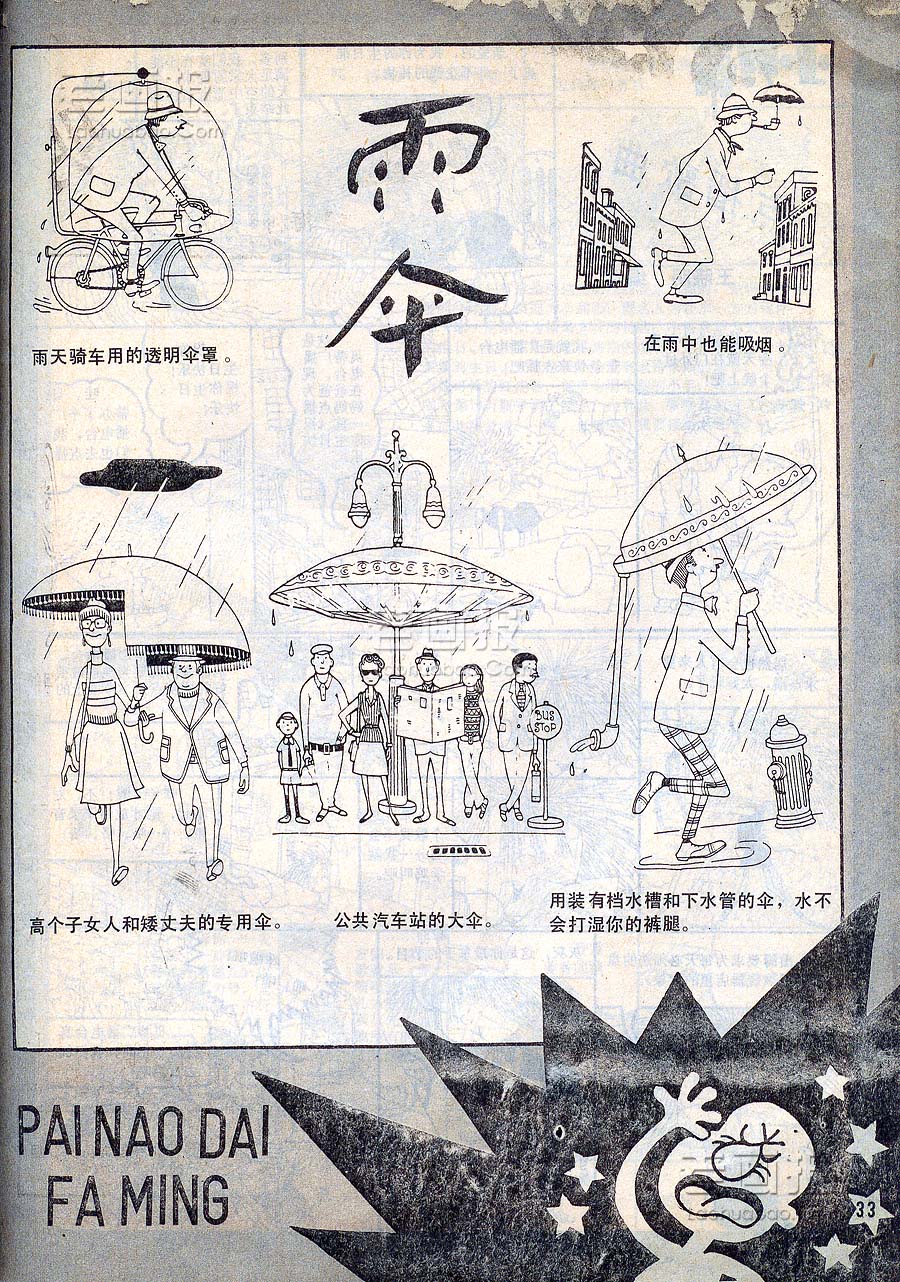 雨
伞
雨天骑车用的透明伞罩。
在雨中也能吸烟。
BUS
STOP
高个子女人和矮丈夫的专用伞。
公共汽车站的大伞。
用装有档水槽和下水管的伞，水不
会打湿你的裤腿。
PAI NAO DAI
FA MING
33
老画报
laohuabao.com
老画报
laohuabao.com
老画报
laohuabao.com